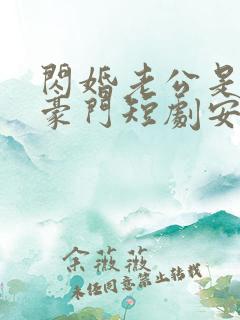 閃婚老公是
豪門短劇安
余薇薇
未任同意禁止轉載